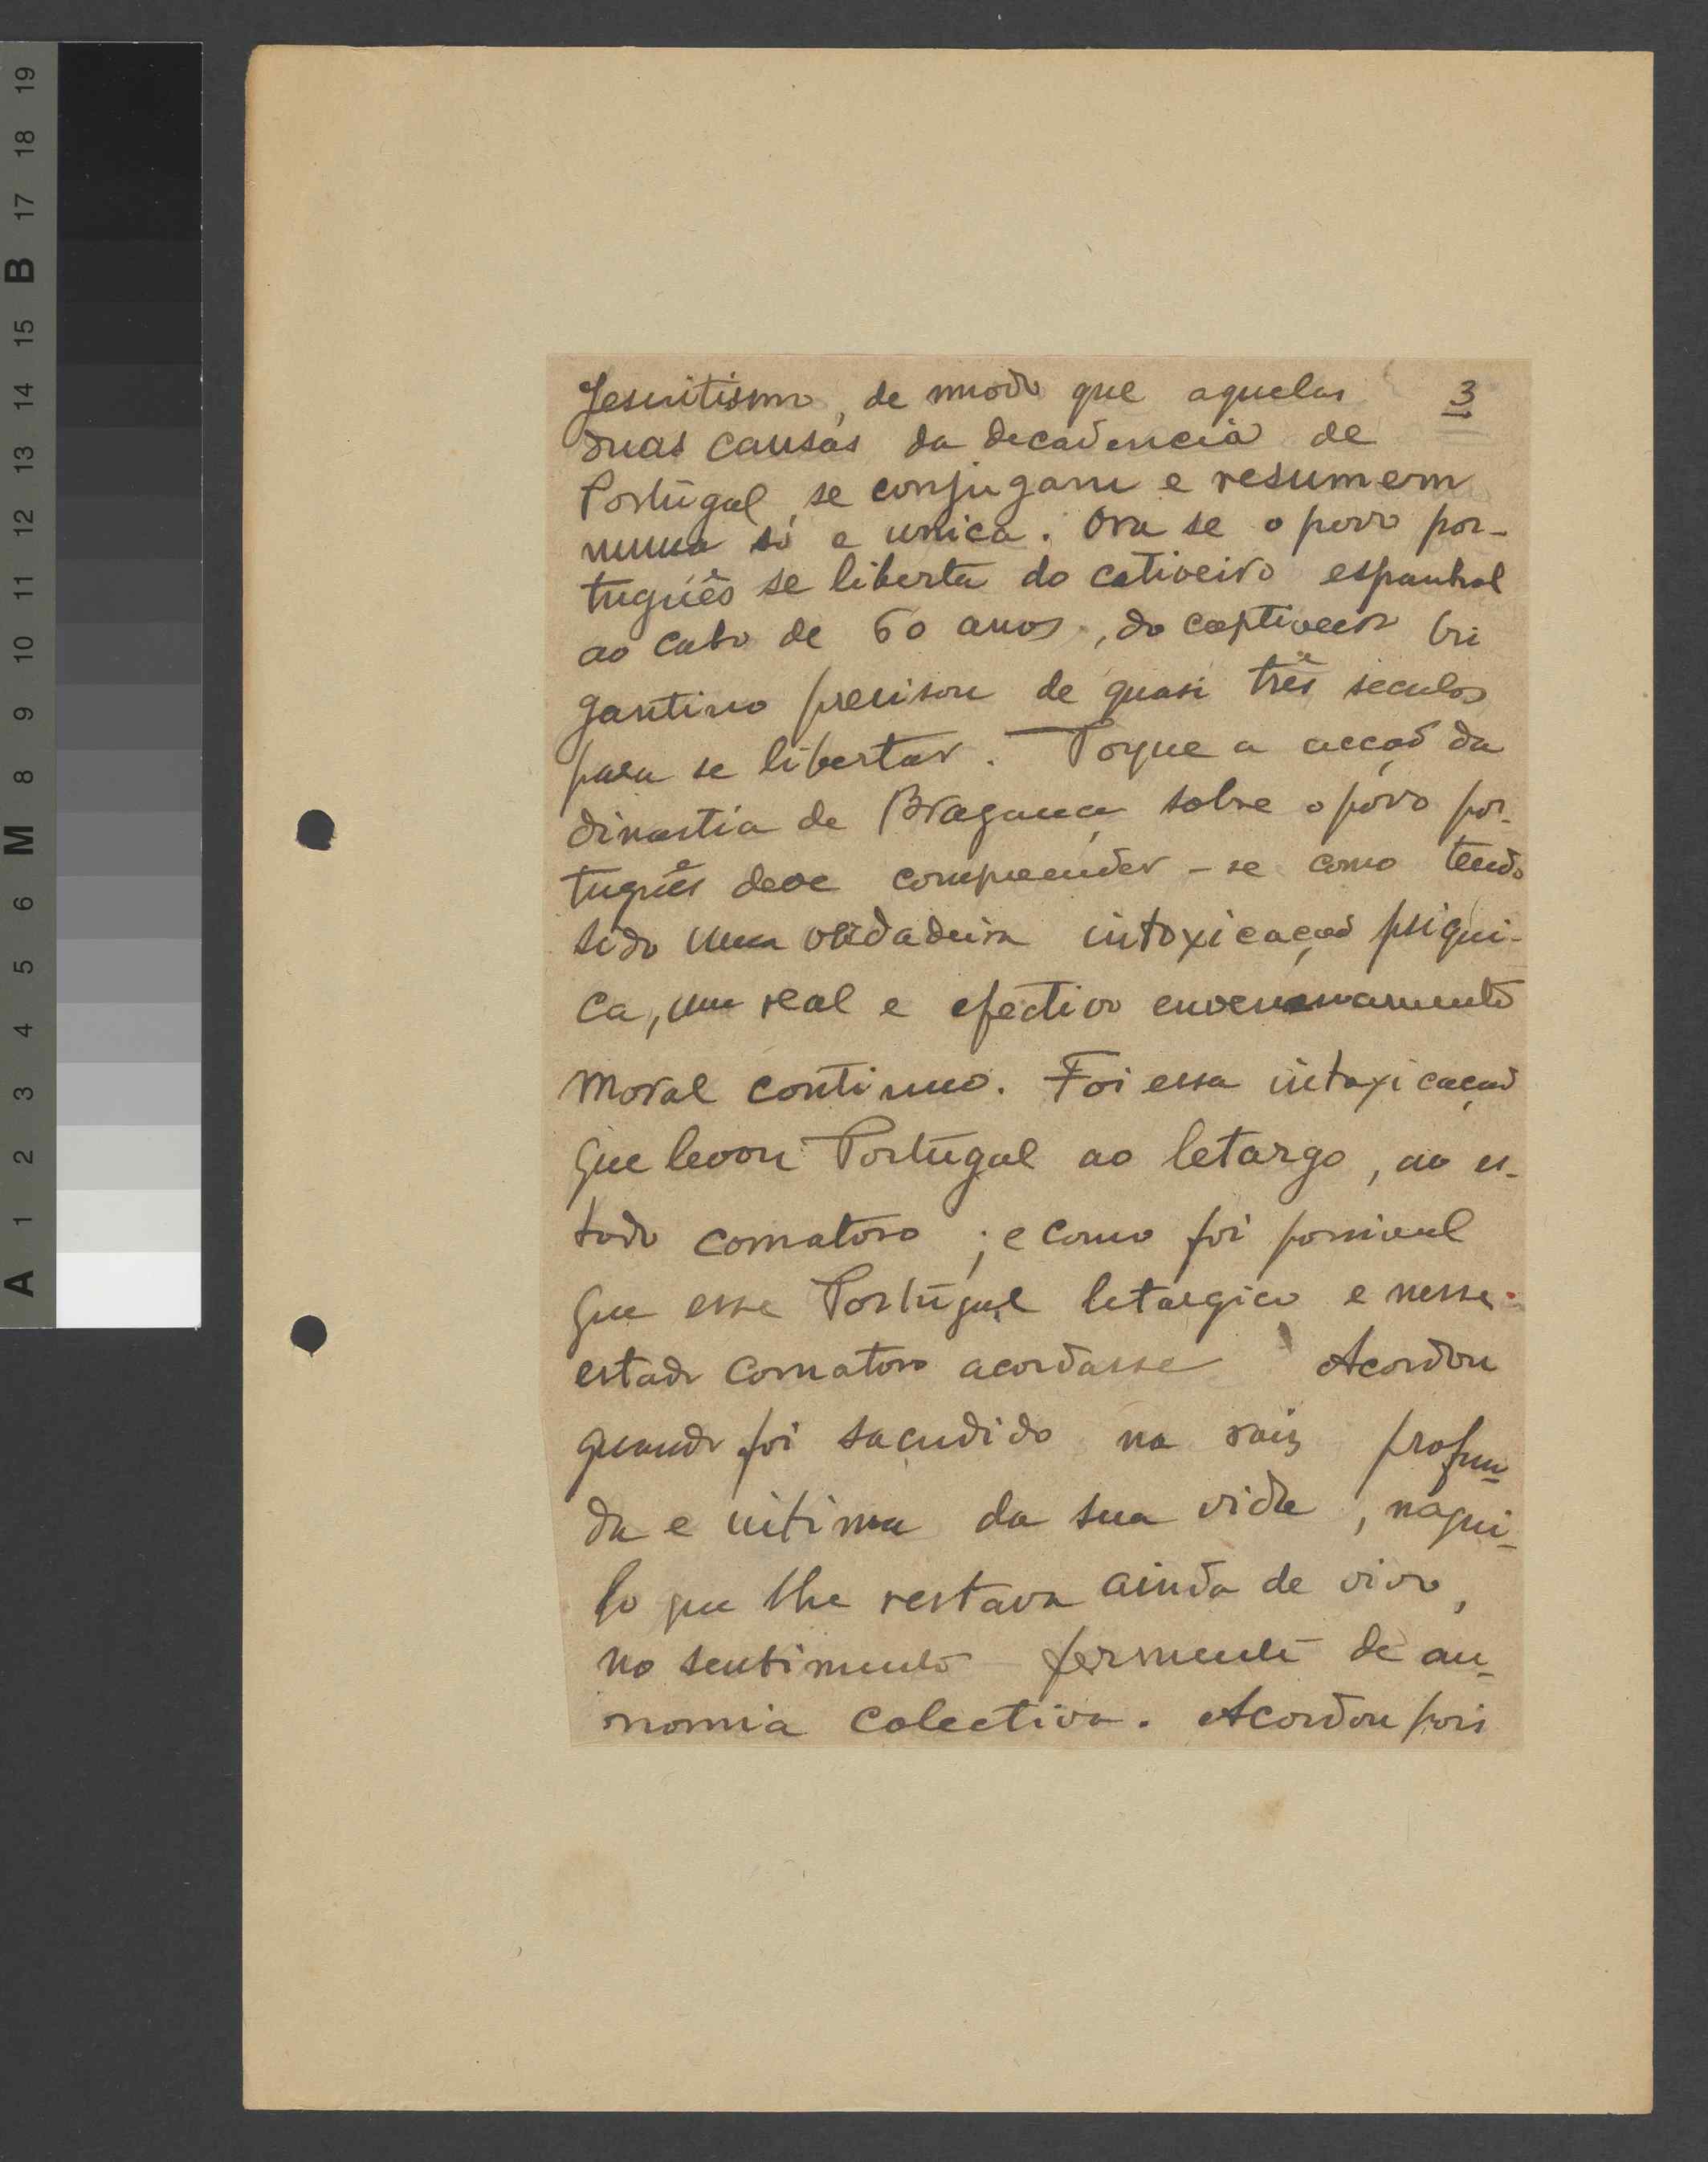 3
Jesuitismo, de modo que aquelas
duas causas da decadencia de
Portugal, se conjugam e resumem
numa só e unica. Ora se o povo por-
tuguês se liberta do cativeiro espanhol
ao cabo de 60 anos, do captiveiro bri
gantino precisou de quasi três seculos
para se libertar. Porque a acção da
dinastia de Bragança sobre o povo por-
tuguês deve compreender-se como tendo
sido uma verdadeira intoxicação psiqui-
ca, um real e efectivo envenenamento
moral continuo. Foi essa intoxicação
que levou Portugal ao letargo, ao es-
tado comatoso; e como foi possivel
que esse Portugal letargico e nesse
estado comatoso acordasse Acordou
quando foi sacudido na raiz profun-
da e intima da sua vida, naqui-
lo que lhe restava ainda de vivo,
no sentimento fermente de au-
nomia colectiva. Acordou pois
A 1 2 3 4 5 6 M 8 9 10 11 12 13 14 15 B 17 18 19